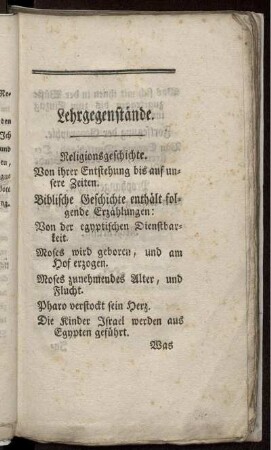 Lehrgegenstände.
Religionsgeschichte.
Von ihrer Entstehung bis auf un-
sere Zeiten.
Biblische Geschichte enthält fol-
gende Erzählungen:
Von der egyptischen Dienstbar-
keit.
Moses wird geboren, und am
Hof erzogen.
Moses zunehmendes Alter, und
Flucht.
Pharo verstockt sein Herz.
Die Kinder Israel werden aus
Egypten geführt.
Was